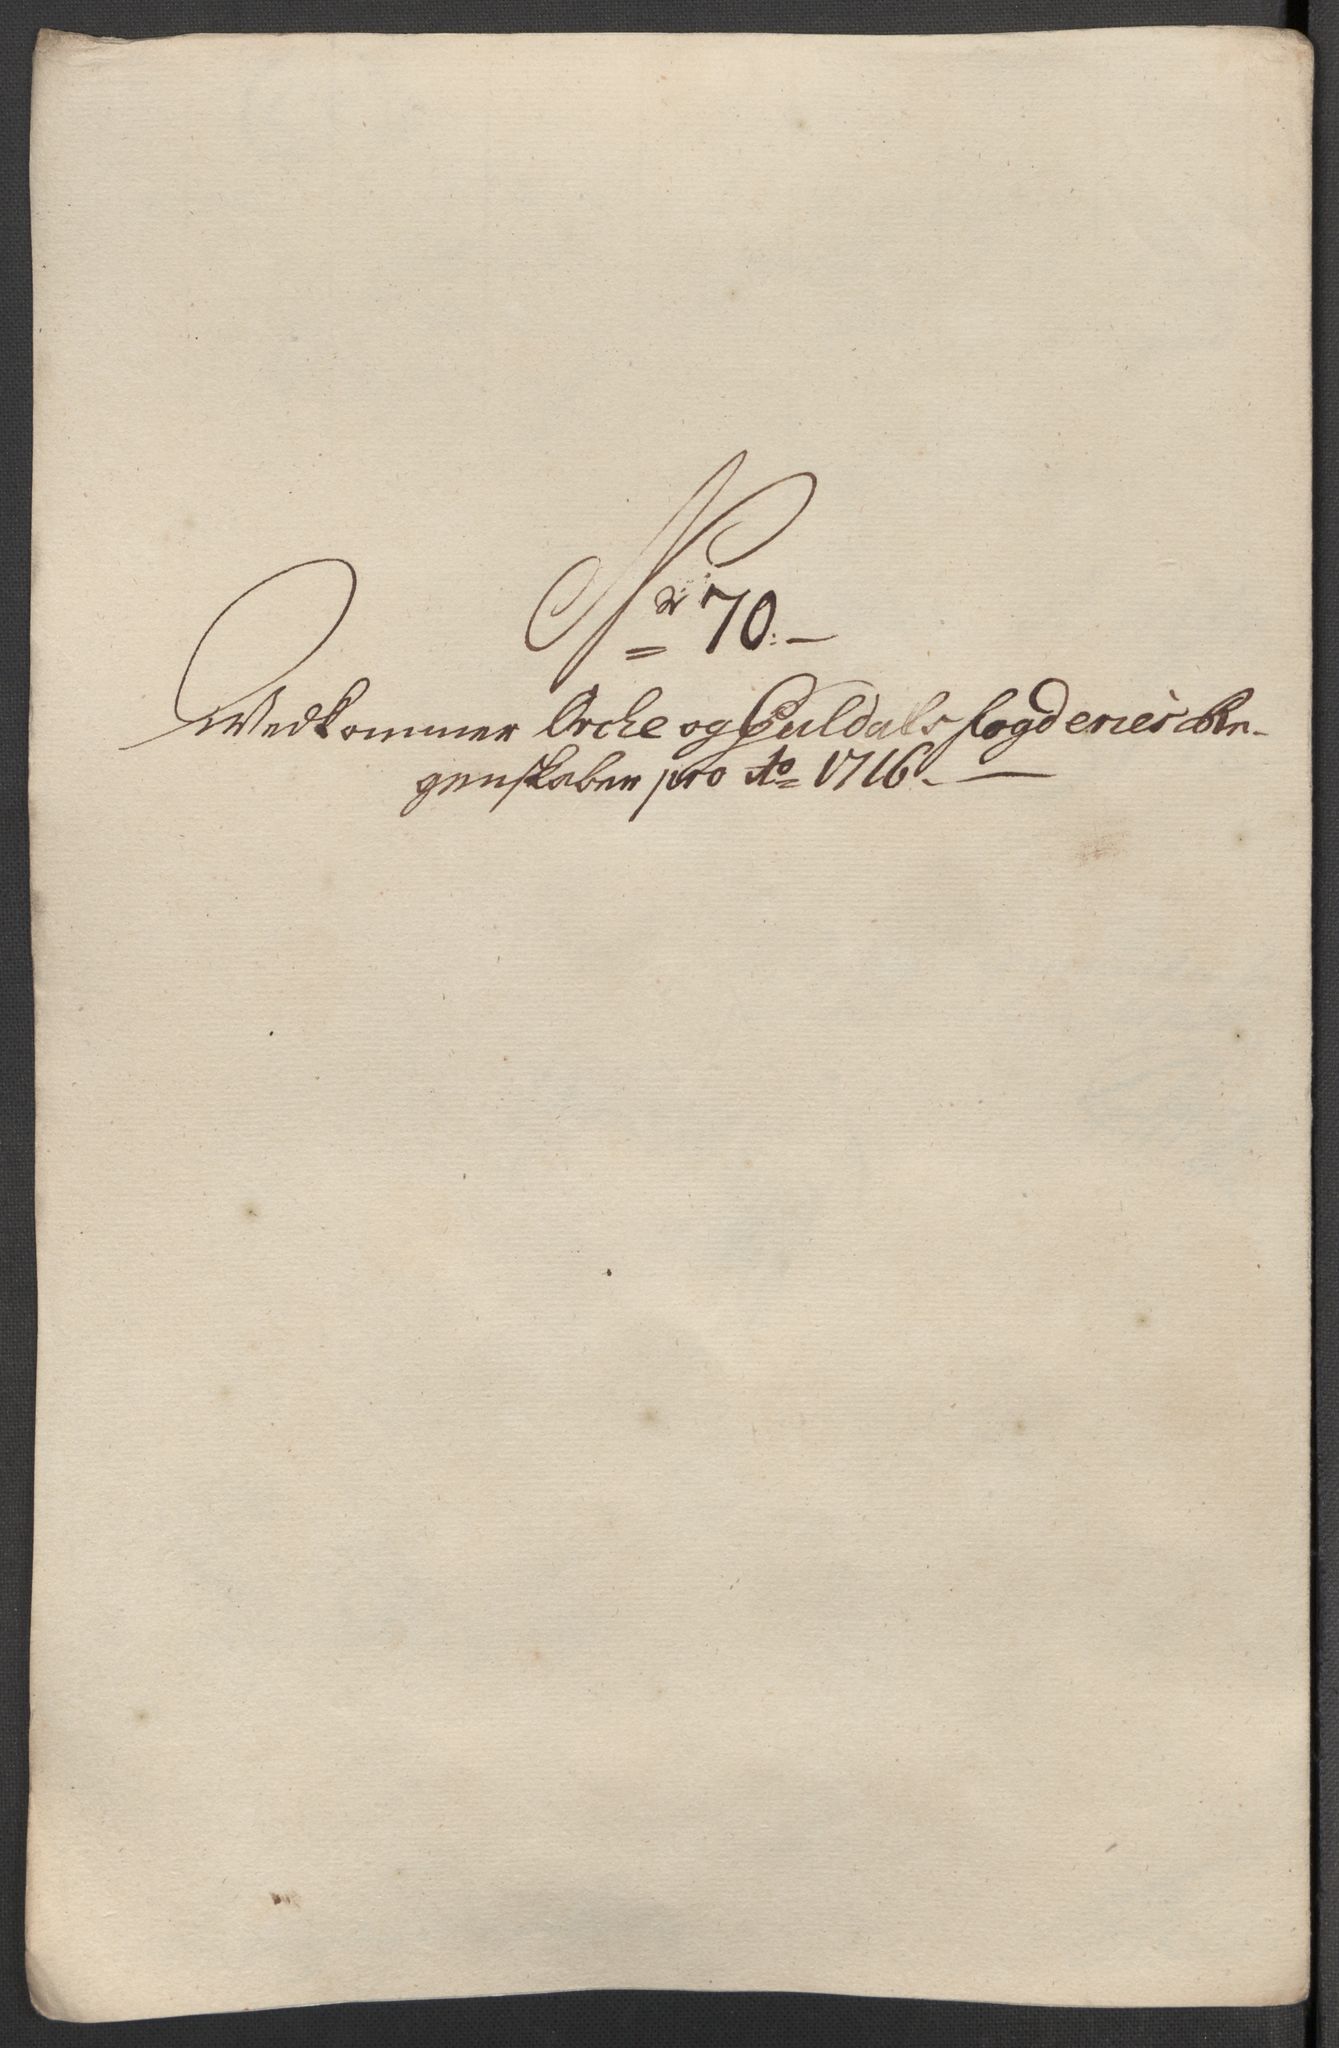 Nr 70.
Vedkommer Orche og Guldals fogderies Re-
genskaber pro Ao 1716.